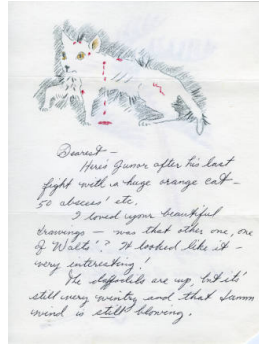 Dearest –
Here's Junor after his last
fight with a huge orange cat –
50 abscess' etc.
I loved your beautiful
drawings – was that other one, one
of Walts'? It looked like it –
very interesting!
The daffodils are up, but its'
still very wintry and that damn
wind is still blowing.